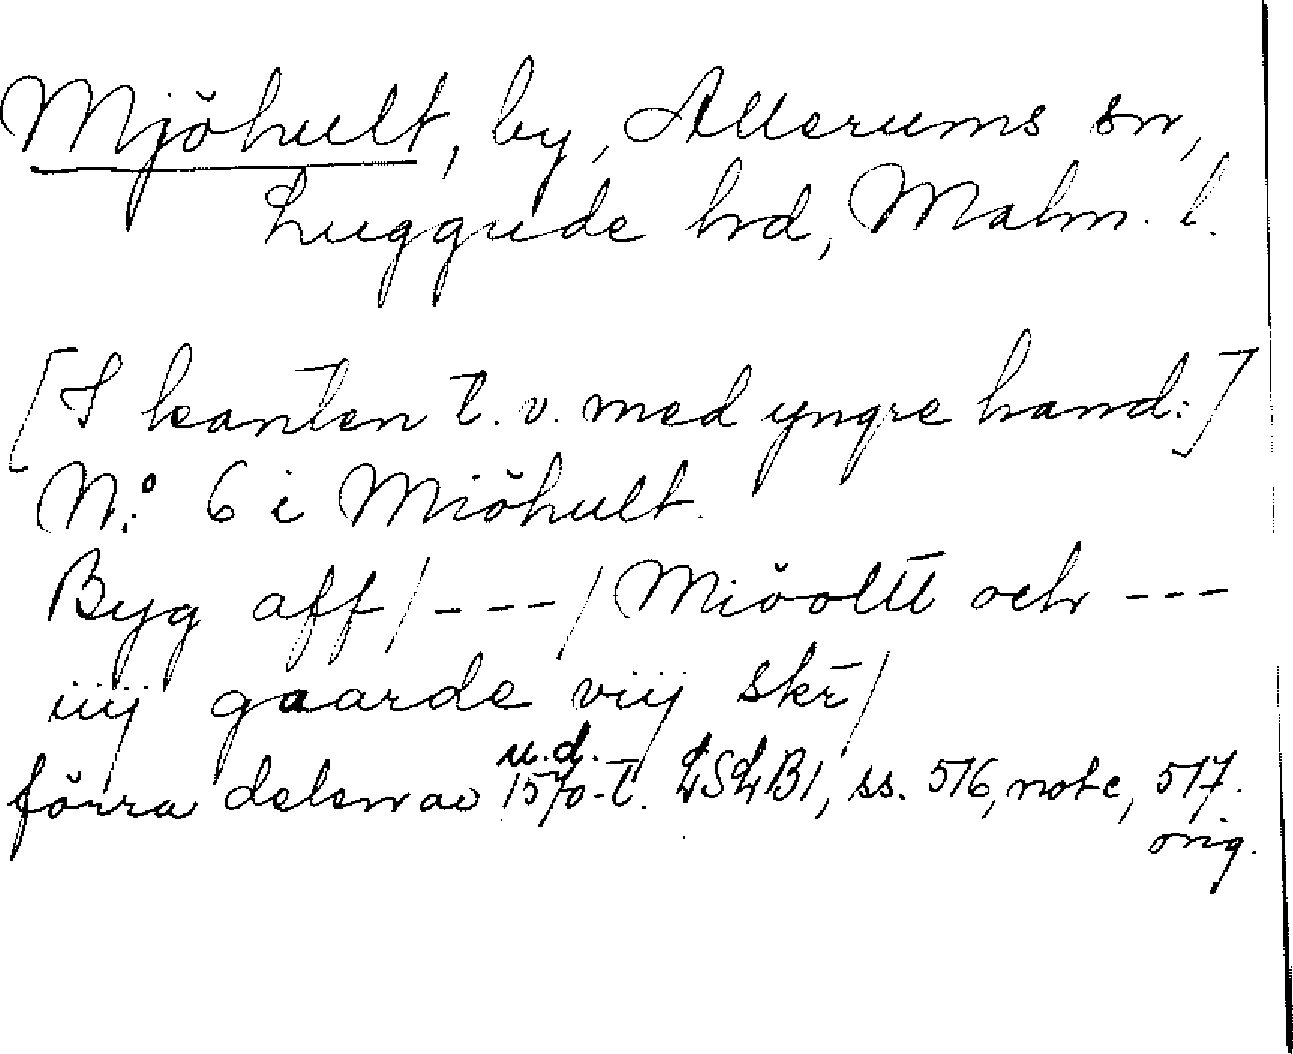 Mjöhult, by, Allerums sn,
Luggude hrd, Malm. l.
[I kanten t.v. med yngre hand:]
N:o 6 i Miöhult.
Byg aff / --- / Miöoltt och ---
iiij gaarde viij skr /
u.d.
förra delen av 1570-t. LSLB1, ss. 516, not e, 517.
orig.